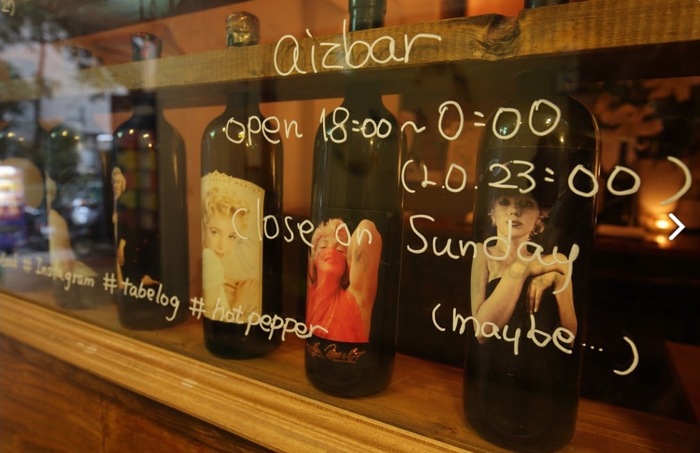 aizbar
open 18:00~0:00
(L.O.23:00)
close on Sunday
(maybe...)
#Instagram #tabelog #hotpepper